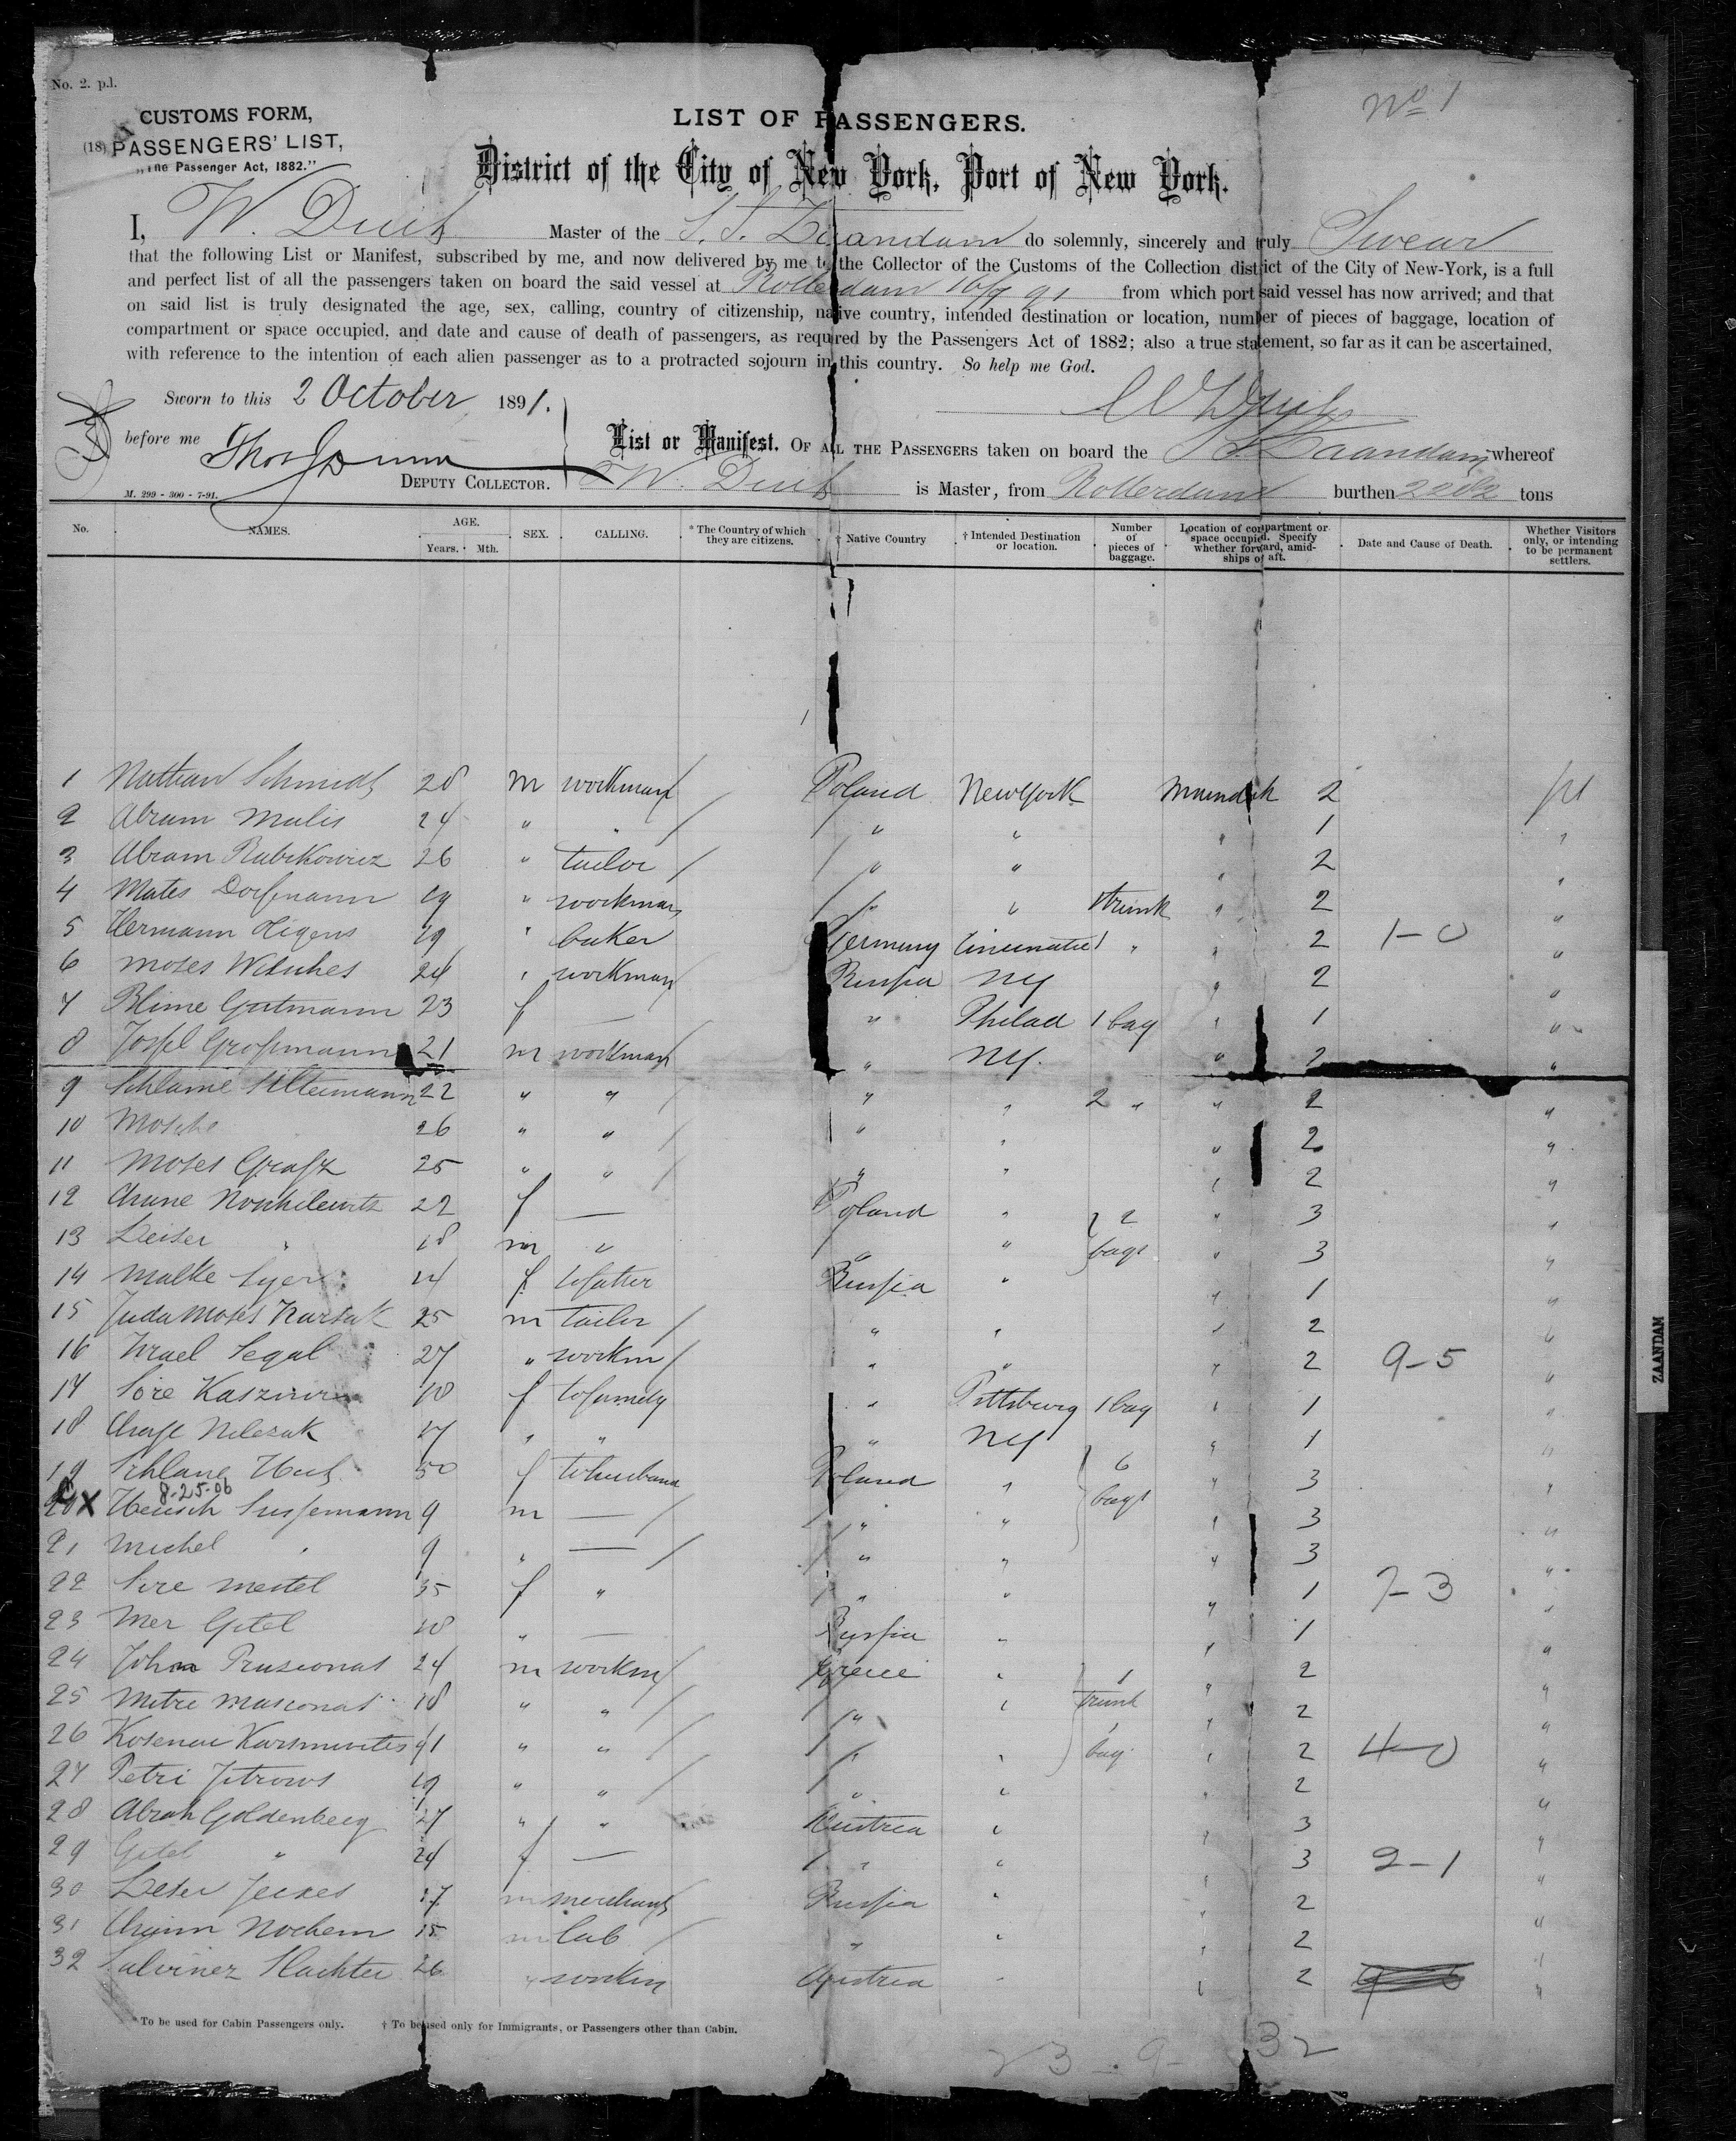 No. 2. p.l.
No 1
CUSTOMS FORM,
(18) PASSENGERS' LIST,
"The Passenger Act, 1882."
LIST OF PASSENGERS.
District of the City of New York, Port of New York.
I, W. Master of the S.S. Zaandam do solemnly, sincerely and truly Swear
that the following List or Manifest, subscribed by me, and now delivered by me to the Collector of the Customs of the Collection district of the City of New-York, is a full
and perfect list of all the passengers taken on board the said vessel at Rotterdam 16/9 91 from which port said vessel has now arrived; and that
on said list is truly designated the age, sex, calling, country of citizenship, native country, intended destination or location, number of pieces of baggage, location of
compartment or space occupied, and date and cause of death of passengers, as required by the Passengers Act of 1882; also a true statement, so far as it can be ascertained,
with reference to the intention of each alien passenger as to a protracted sojourn in this country. So help me God.
Sworn to this 2 October 1891.
before me
DEPUTY COLLECTOR.
M. 299 - 300 - 7-91.
List or Manifest. OF ALL THE PASSENGERS taken on board the Zaandam whereof
W. is Master, from Rotterdam burthen tons
No. NAMES. AGE. Years. Mth. SEX. CALLING. * The Country of which they are citizens. † Native Country † Intended Destination or location. Number of pieces of baggage. Location of compartment or space occupied. Specify whether forward, amidships or aft. Date and Cause of Death. Whether Visitors only, or intending to be permanent settlers.
1 Nathan Schmidt 28 m workman Poland New York 2
2 Abram Malis 24 " " " " " 1 "
3 Abram Rubikowicz 26 " tailor " " " 2 "
4 Mates Dorfmann 19 " workman " " 1 trunk " 2 "
5 Hermann Higens 19 " baker Germany Cincinnati 1 " " 2 1-0 "
6 Moses 24 " workman Russia NY " 2 "
7 Blime Gutmann 23 f — " Philad 1 bag " 1 "
8 Josfel Grossmann 21 m workman " NY. " 2 "
9 Schlame 22 " " " " 2 " " 2 "
10 Mosche 26 " " " " " 2 "
11 Moses 25 " " " " " 2 "
12 22 f — Poland " 2 " 3 "
13 Leiser " 18 m " " " bags " 3 "
14 Malke f to father Russia " " 1 "
15 Juda Moses 25 m tailor " " " 2 "
16 Israel Segal 27 " workm " " " 2 9-5 "
17 Sore 18 f to family " Pittsburg 1 bag " 1 "
18 17 " " " NY " 1 "
19 Schlane 50 f to husband Poland " 6 bags " 3 "
8-25-06
20 X Hersch Sussemann 9 m — " " " 3 "
21 Michel " 9 " — " " " 3 "
22 Sore Mestel 35 f " " " " 1 7-3 "
23 Mer Gitel 18 " — Russia " " 1 "
24 24 m workm Greece " 1 trunk " 2 "
25 Mitre 18 " " " " " 2 "
26 41 " " " " 1 bag. " 2 4-0 "
27 Petri 19 " " " " " 2 "
28 Abrah Goldenberg 27 " " Austria " " 3 "
29 Gitel " 24 f — " " " 3 2-1 "
30 17 m merchant Russia " " 2 "
31 Nochem 15 m " " " 2 "
32 26 " workm Austria " " 2 "
* To be used for Cabin Passengers only. † To be used only for Immigrants, or Passengers other than Cabin.
23 - 9 - 32
ZAANDAM